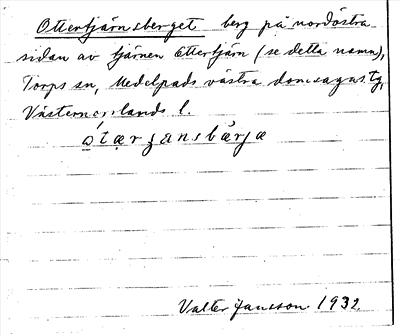 Ottertjärnsberget berg på nordöstra
sidan av tjärnen Ottertjärn (se detta namn),
Torps sn, Medelpads västra domsagas tg,
Västernorrlands l.
Valter Jansson 1932.